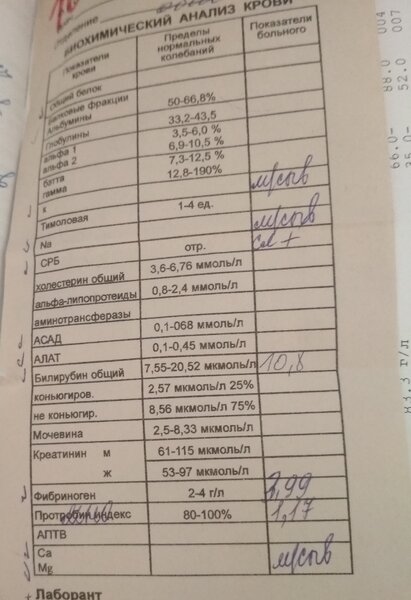 БИОХИМИЧЕСКИЙ АНАЛИЗ КРОВИ
Показатели крови Пределы нормальных колебаний Показатели больного
Общий белок
Белковые фракции
Альбумины 50-66,8%
Глобулины 33,2-43,5
альфа 1 3,5-6,0 %
альфа 2 6,9-10,5 %
батта 7,3-12,5 %
гамма 12,8-190%
к м/сыв
Тимоловая 1-4 ед.
Na м/сыв
СРБ отр. +
холестерин общий 3,6-6,76 ммоль/л
альфа-липопротеиды 0,8-2,4 ммоль/л
аминотрансферазы
АСАД 0,1-068 ммоль/л
АЛАТ 0,1-0,45 ммоль/л
Билирубин общий 7,55-20,52 мкмоль/л 10,8
коньюгиров. 2,57 мкмоль/л 25%
не коньюгир. 8,56 мкмоль/л 75%
Мочевина 2,5-8,33 ммоль/л
Креатинин м 61-115 мкмоль/л
ж 53-97 мкмоль/л
Фибриноген 2-4 г/л 3,99
Протромбин индекс 80-100% 1,17
АПТВ
Ca
Mg м/сыв
Лаборант